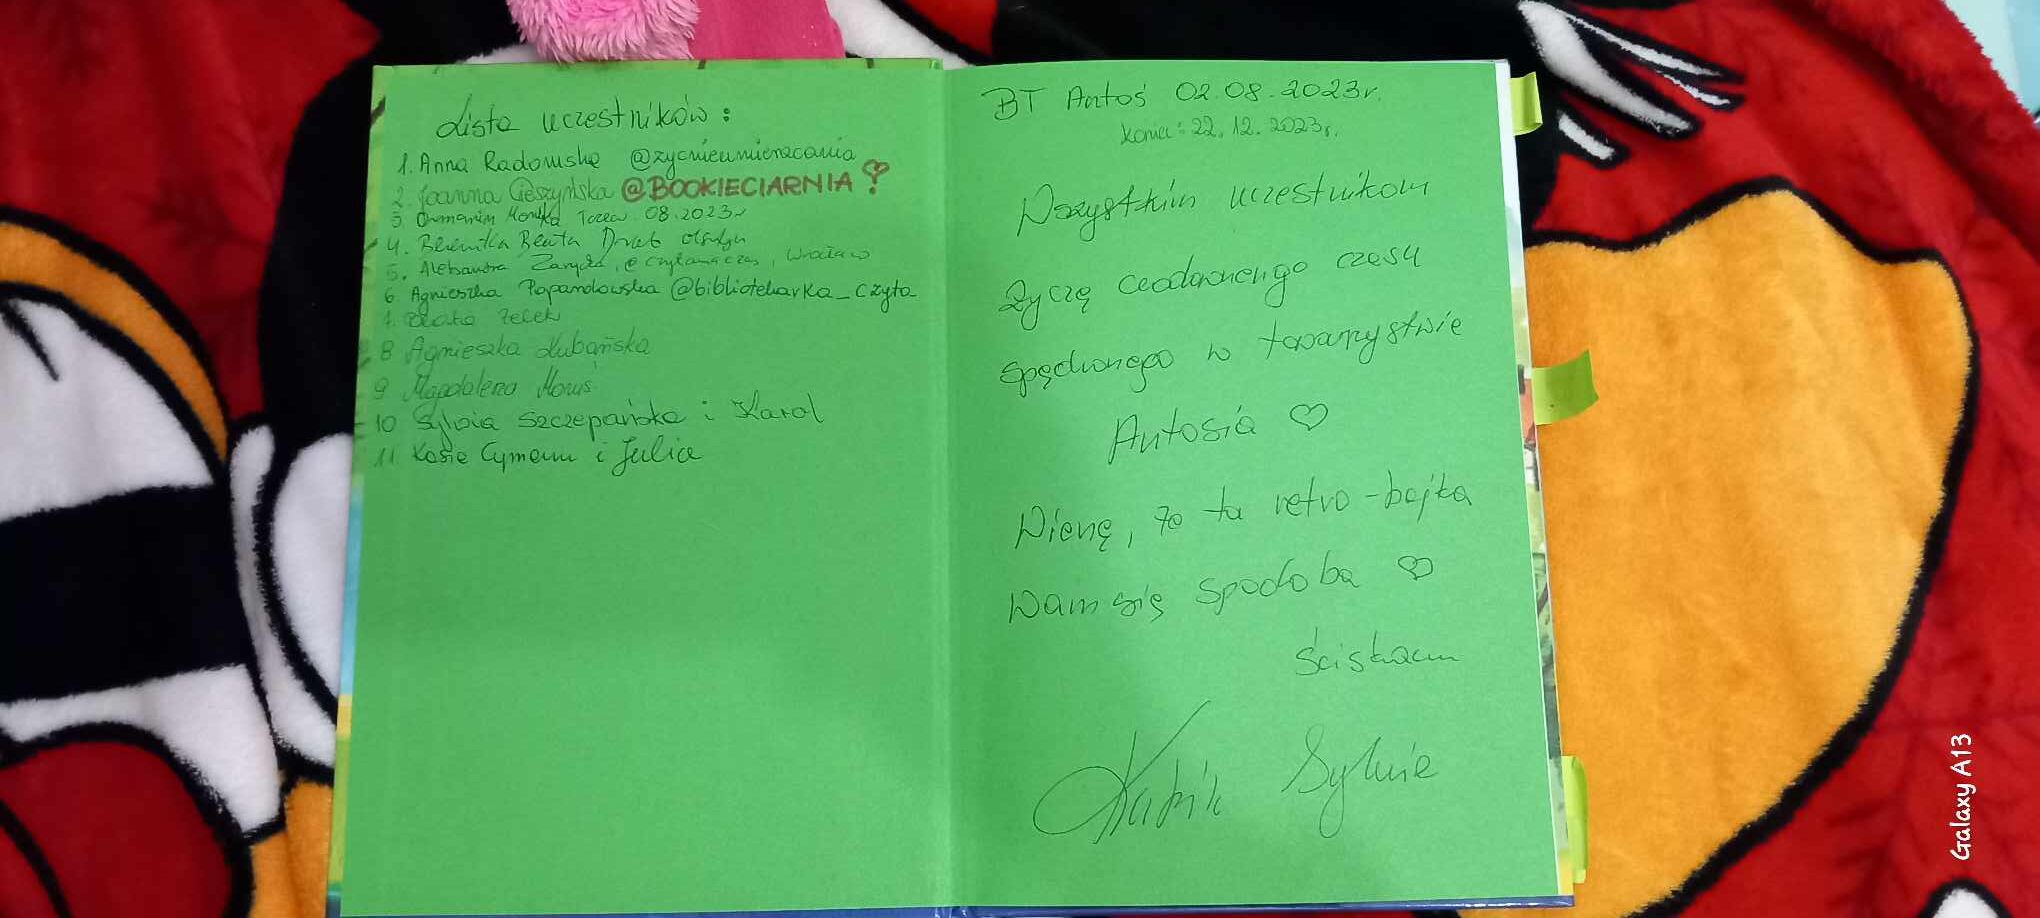 Lista uczestników:
1. Anna Radomska @zyciieumierzacania
2. Joanna Cieszyńska @BOOKIECIARNIA
3. Monika Tczew 08.2023r
4. Beata
5. Aleksandra Zarycka, @czytamaczas, Wrocław
6. Agnieszka Papandowska @bibliotekarka_czyta
7. Beata Zelek
8 Agnieszka Lubańska
9 Magdalena
10 Sylwia Szczepańska i Karol
11 Kasia Cymann i Julia
BT Antoś 02.08.2023r.
Koniec: 22.12.2023r.
Wszystkim uczestnikom
życzę cudownego czasu
spędzonego w towarzystwie
Antosia ♡
Wierzę, że ta retro-bajka
Wam się spodoba ♡
ściskam
Sylwia
Galaxy A13